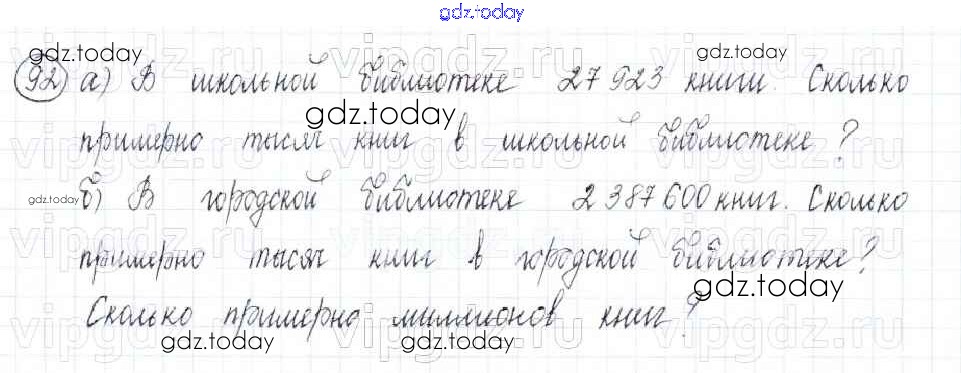 gdz.today
92) а) В школьной библиотеке 27 923 книги. Сколько
примерно тысяч книг в школьной библиотеке?
б) В городской библиотеке 2 387 600 книг. Сколько
примерно тысяч книг в городской библиотеке?
Сколько примерно миллионов книг?
gdz.today
gdz.today
gdz.today
gdz.today
gdz.today
gdz.today
vipgdz.ru